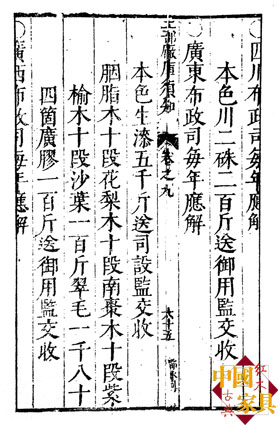 ○四川布政司毎年應解
本色川二硃二百斤送御用監交收
○廣東布政司毎年應解
工部廠庫須知 卷之九 六十五
本色生漆五千斤送司設監交收
胭脂木十段花梨木十段南棗木十段紫
榆木十段沙葉一百斤翠毛一千八十
四箇廣膠二百斤送御用監交收
○廣西布政司毎年應解
中國
紅木
古典
家具